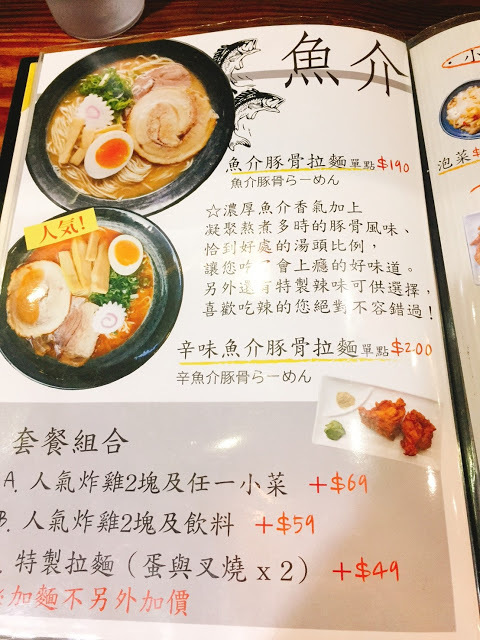 魚介
魚介豚骨拉麵 單點$190
魚介豚骨らーめん
☆濃厚魚介香氣加上
凝聚熬煮多時的豚骨風味、
恰到好處的湯頭比例，
讓您吃 會上癮的好味道。
另外還有特製辣味可供選擇，
喜歡吃辣的您絕對不容錯過！
人気！
辛味魚介豚骨拉麵 單點$200
辛魚介豚骨らーめん
套餐組合
A. 人氣炸雞2塊及任一小菜 +$69
B. 人氣炸雞2塊及飲料 +$59
特製拉麵（蛋與叉燒 x 2） +$49
加麵不另外加價
小
泡菜$